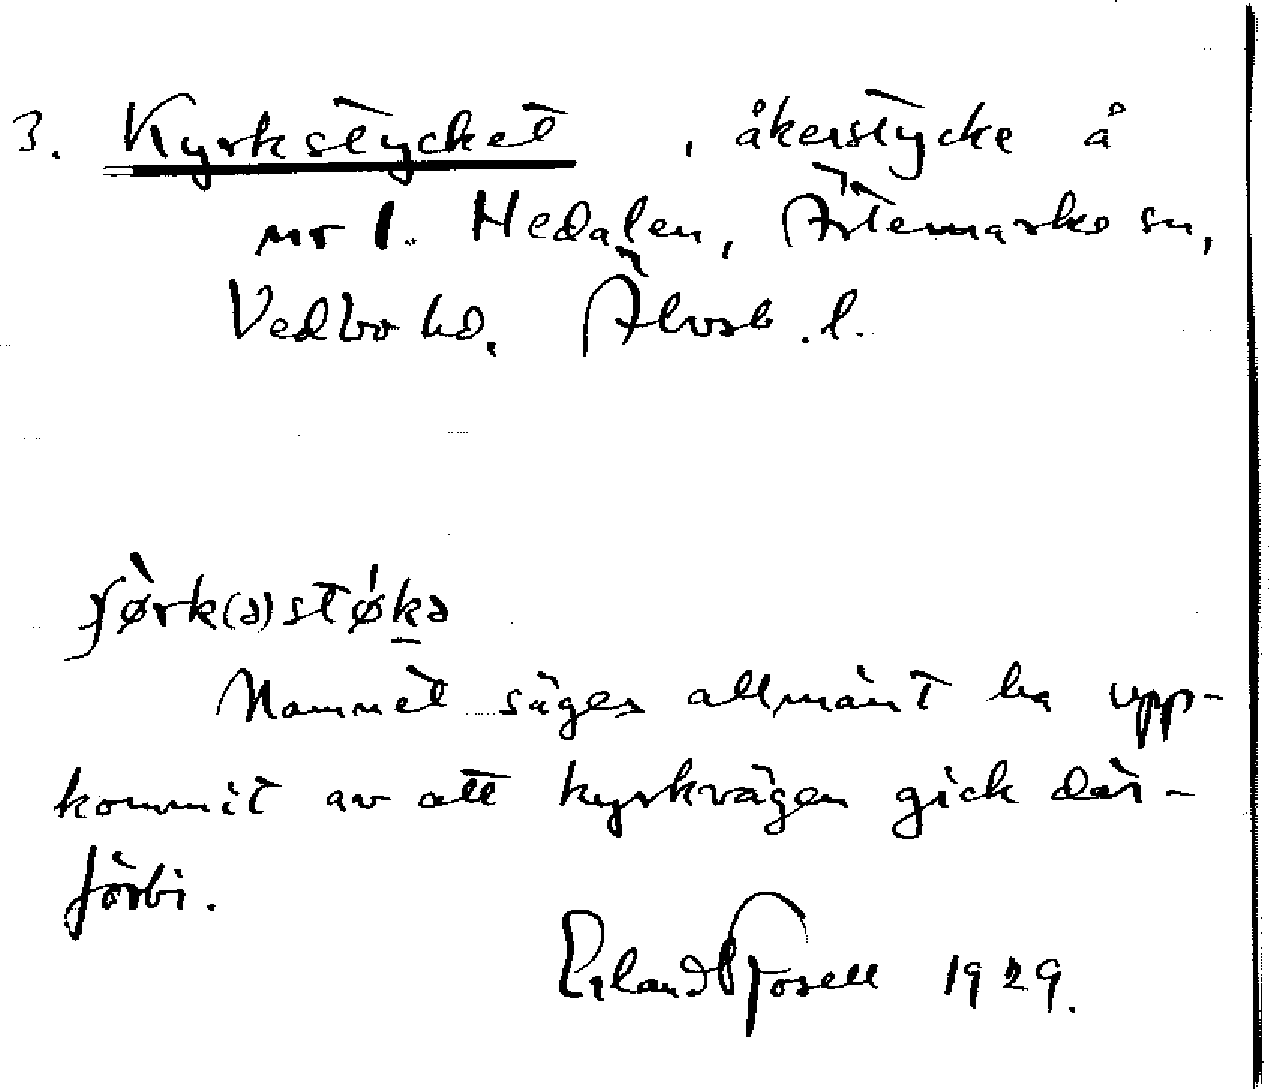 3. Kyrkstycket, åkerstycke å
nr 1. Hedalen, Ärtemarks sn,
Vedbo hd. Älvsb. l.
ʃø̀rk(ə)stǿkə
Namnet säges allmänt ha upp-
kommit av att kyrkvägen gick där-
förbi.
Erland Rosell 1929.